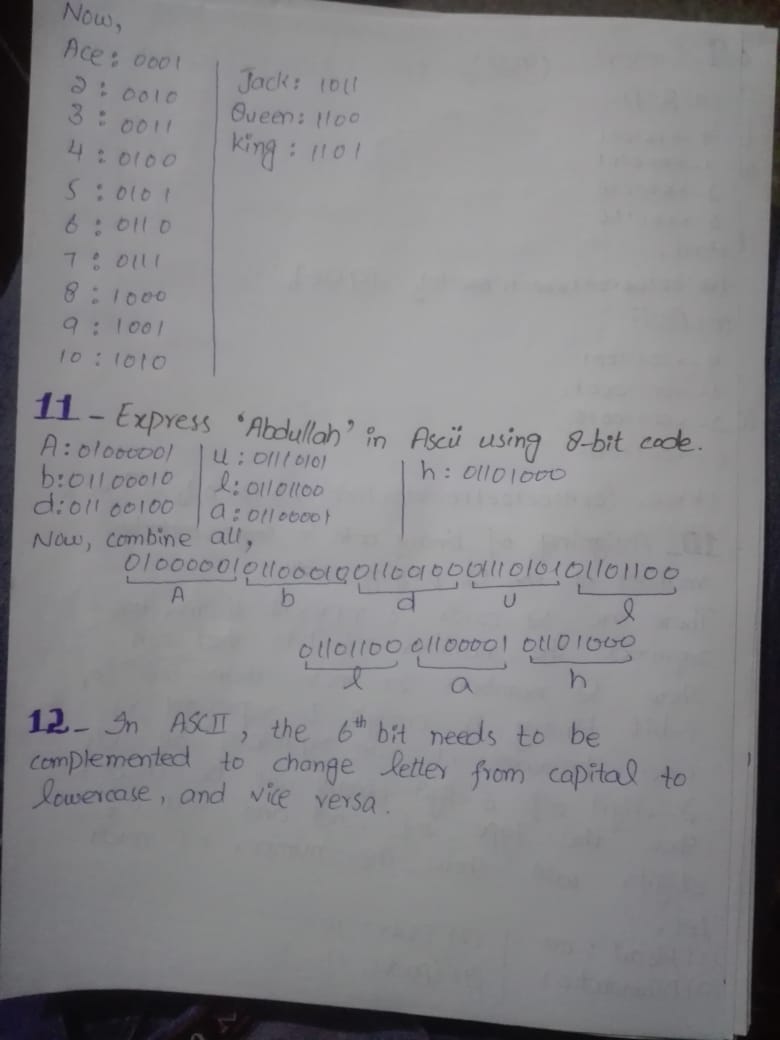 Now,
Ace: 0001
2 : 0010
3 : 0011
4 : 0100
5 : 0101
6 : 0110
7 : 0111
8 : 1000
9 : 1001
10 : 1010
Jack: 1011
Queen: 1100
King : 1101
11 - Express 'Abdullah' in Ascii using 8-bit code.
A: 01000001
b: 01100010
d: 01100100
u : 01110101
l: 01101100
a: 01100001
h: 01101000
Now, combine all,
0100000101100010011001000111010101101100
A b d u l
01101100 01100001 01101000
l a h
12- In ASCII, the 6th bit needs to be
complemented to change letter from capital to
lowercase, and vice versa.